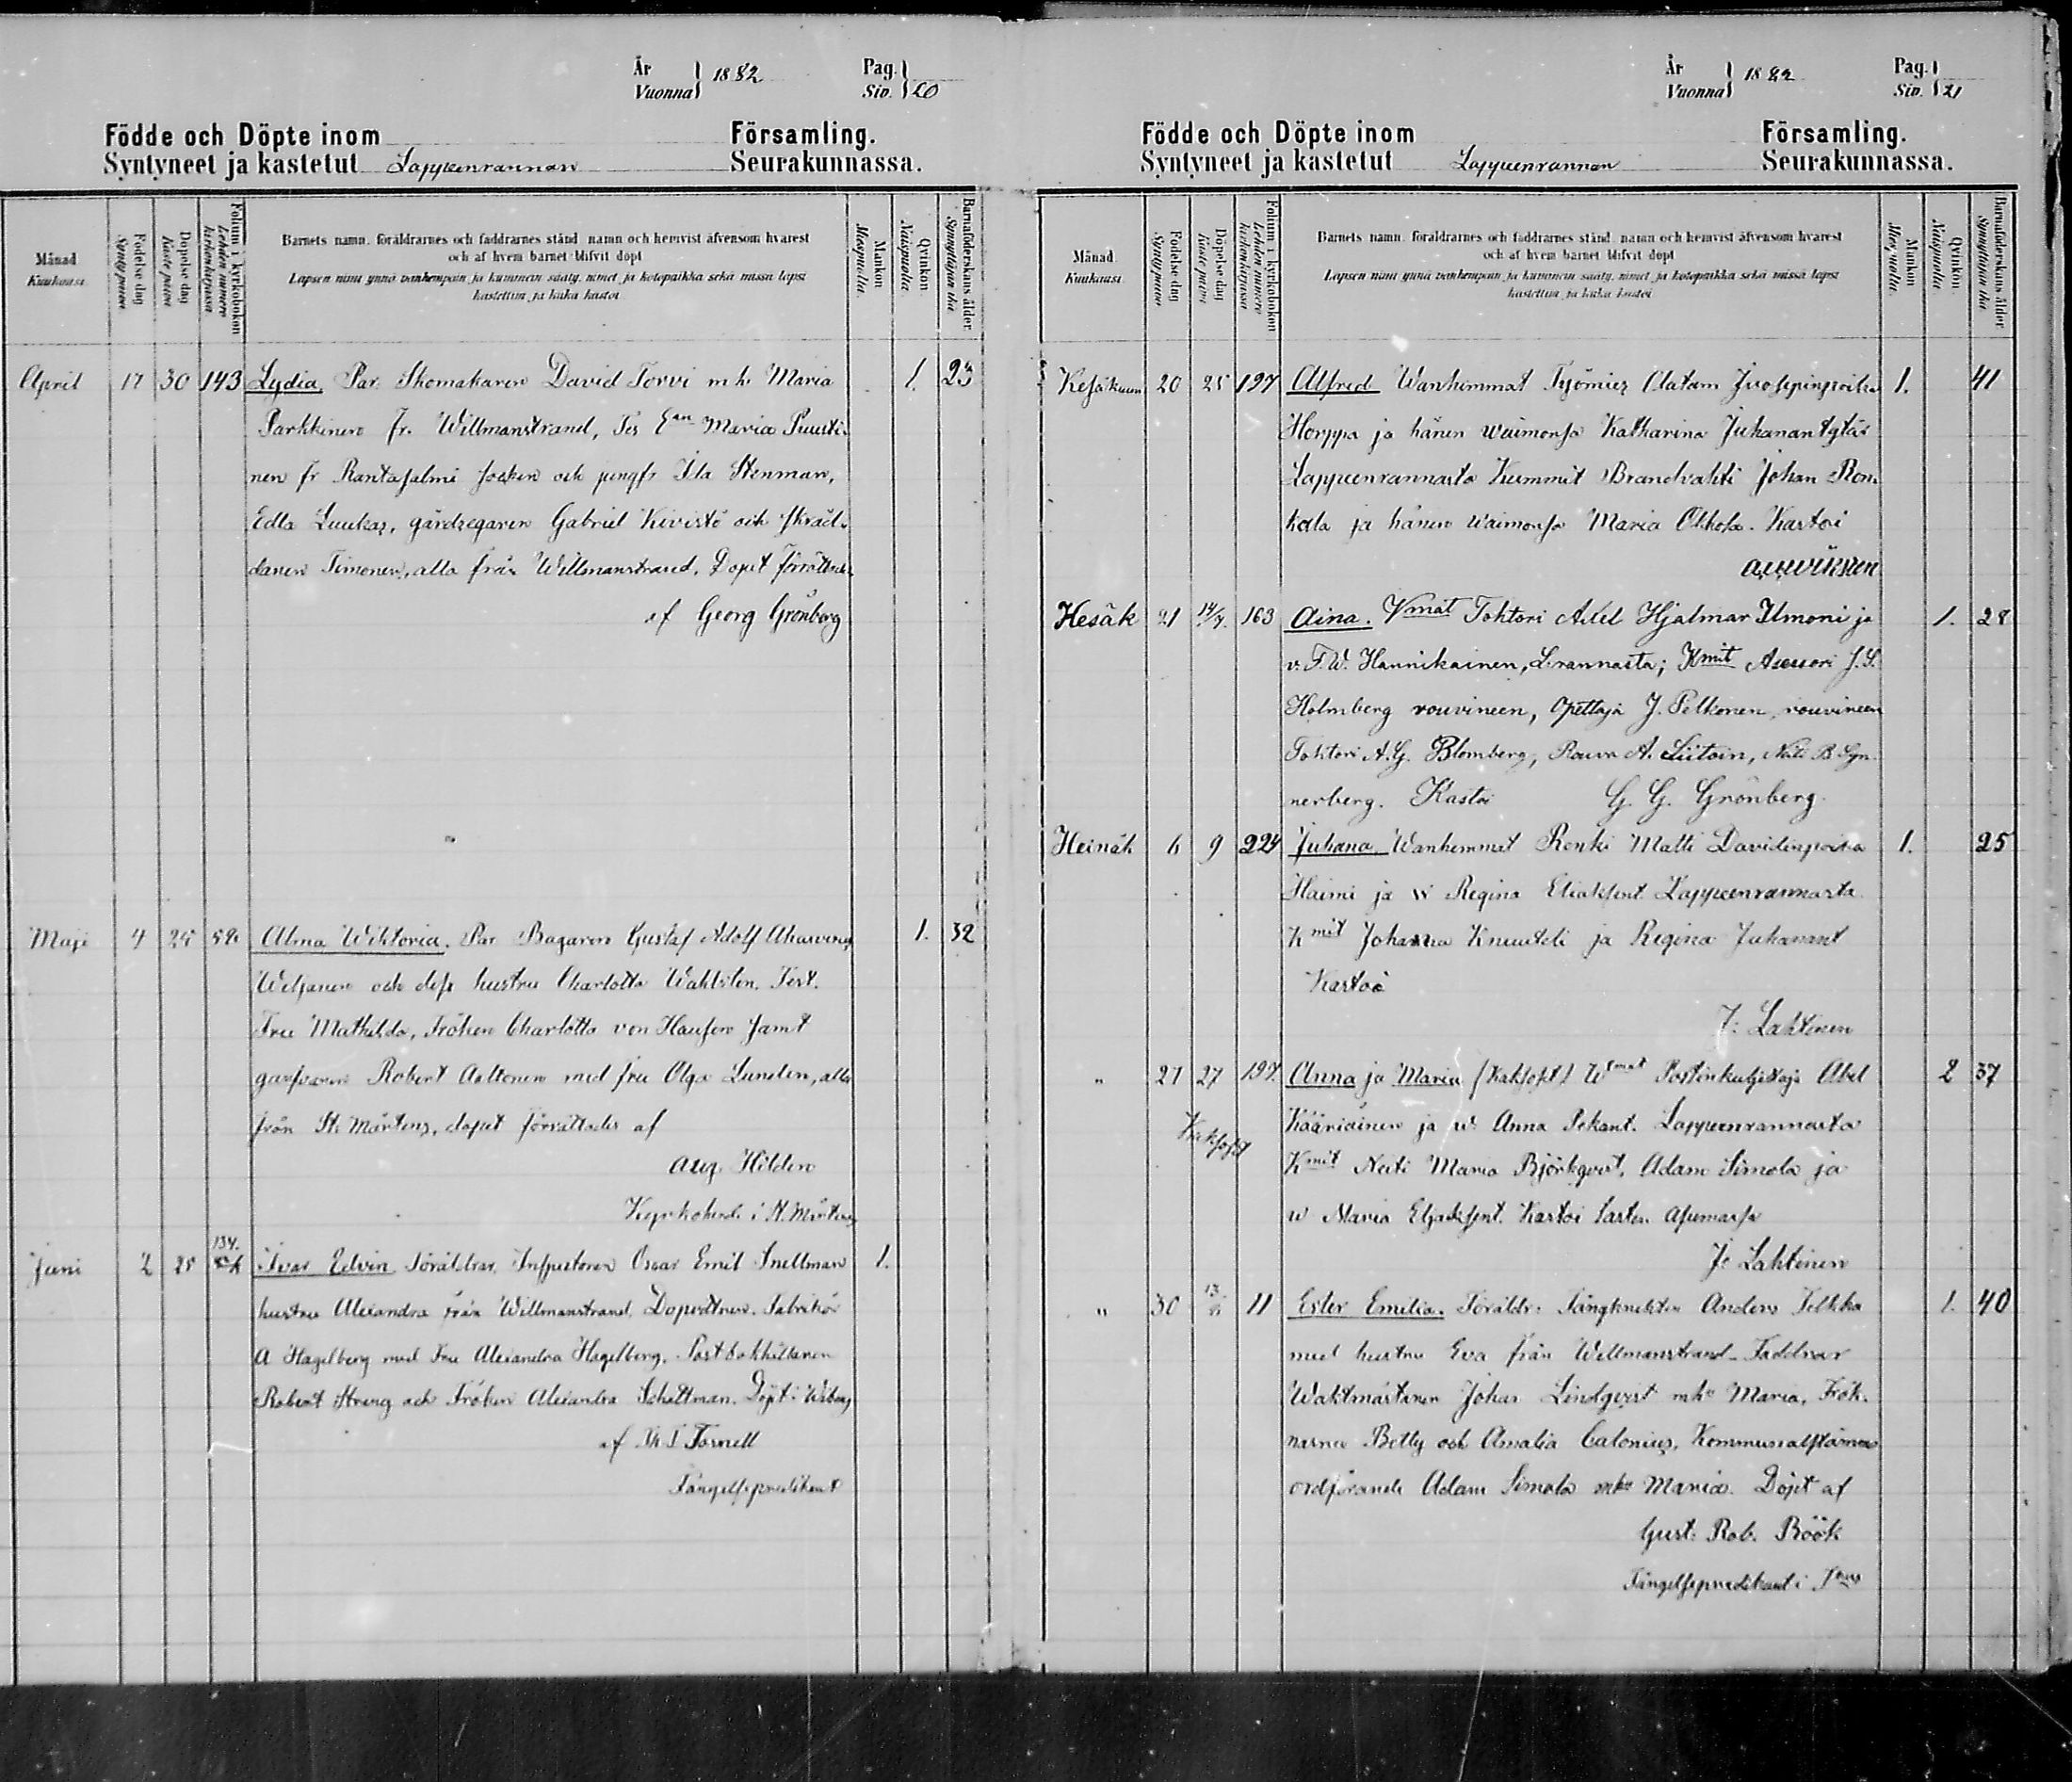 År Vuonna 1882 Pag. Siv. 20
Födde och Döpte inom Församling.
Syntyneet ja kastetut Lappeenrannan Seurakunnassa.
Månad Kuukausi
Födelse dag Synty päivä
Döpelse dag Kaste päivä
Folium i kyrkoboken Lehden numero kirkonkirjassa
Barnets namn, föräldrarnes och faddrarnes stånd, namn och hemvist äfvensom hvarest
och af hvem barnet blifvit döpt
Lapsen nimi ynnä vanhempain ja kummein sääty, nimet ja kotopaikka sekä missä lapsi
kastettiin ja kuka kastoi
Mankön Miespuolia.
Qvinkön. Naispuolia.
Barnaföderskans ålder. Synnyttäjän ikä
April 17 30 143 Lydia. Par. Skomakaren David Torvi m.h. Maria 1. 23
Parkkinen fr. Willmanstrand, Tes Maria Puusti-
nen fr Rantasalmi socken och jungfr Ida Stenman,
Edla Luukas, gårdsegaren Gabriel Kivistö och skräd-
daren Timonen, alla från Willmanstrand. Dopet förrättades
af Georg Grönberg
Maji 4 25 52 Alma Wiktoria. Par Bagaren Gustaf Adolf 1. 32
Weljanen och dess hustru Charlotta Wahlsten. Test.
Fru Mathilda, Fröken Charlotta von Hausen samt
garfvaren Robert Aaltonen med fru Olga Lunden, alla
från St. Mårtens, dopet förrättades af
Aug. Hilden
Kyrkoherde i St. Mårtens
Juni 2 25 134. Ivar Edvin Föräldrar, Inspektoren Oscar Emil Snellman 1.
hustru Alexandra från Willmanstrand. Dopvittnen. Fabrikör
A Hagelberg med Fru Alexandra Hagelberg. Postbokhållaren
Robert Streng och Fröken Alexandra Schattman. Döpt i Wiborg
af Forsnell
Fängelsepredikant
År Vuonna 1882 Pag. Siv. 21
Födde och Döpte inom Församling.
Syntyneet ja kastetut Lappeenrannan Seurakunnassa.
Månad Kuukausi
Födelse dag Synty päivä
Döpelse dag Kaste päivä
Folium i kyrkoboken Lehden numero kirkonkirjassa
Barnets namn, föräldrarnes och faddrarnes stånd, namn och hemvist äfvensom hvarest
och af hvem barnet blifvit döpt
Lapsen nimi ynnä vanhempain ja kummein sääty, nimet ja kotopaikka sekä missä lapsi
kastettiin ja kuka kastoi
Mankön Miespuolia.
Qvinkön. Naispuolia.
Barnaföderskans ålder. Synnyttäjän ikä
Kesäkuun 20 25 197 Alfred Wanhimmat Työmies Aatam Juosepinpoika 1. 41
Horppa ja hänen waimonsa Katharina Juhanantytär
Lappeenrannasta Kummit Brandvahti Johan Ron-
kala ja hänen waimonsa Maria Olkola. Kastoi

Kesäk 21 14/7. 163 Aina. Vmat Tohtori Axel Hjalmar Ilmoni ja 1. 28
v. F.W. Hannikainen, L:rannasta; Kmit Asessori J.S.
Holmberg rouvineen, Opettaja J. Pelkonen, rouvineen
Tohtori A.G. Blomberg, Rouva A. Liitoin, Neiti B Syn-
nerberg. Kastoi G. G. Grönberg.
Heinäk 6 9 224 Juhana. Wanhemmat Renki Matti Davidinpoika 1. 25
Haimi ja w Regina Eliaksent. Lappeenrannasta
Kmit Johanna Knuutti ja Regina Juhanant
Kastoi
J. Lahtinen
" 27 27 197. Anna ja Maria (Kaksoset) Wmat Postinkuljettaja Abel 2 37
Kaksoset
Kääriäinen ja w. Anna Pekant. Lappeenrannasta
Kmit Neiti Maria Björkqvist, Adam Simola ja
w Maria Eljaksent. Kastoi
J. Lahtinen
" 30 13/8 11 Ester Emilia. Föräldr: Fångknekten Anders Kelkka 1. 40
med hustru Eva från Willmanstrand. Faddrar
Waktmästaren Johan Lindqvist mhu Maria, Frök-
narna Betty och Amalia Calonius, Kommunalstämmo
ordförande Adam Simola mhu Maria. Döpt af
Gust. Rob. Böök
Fängelsepredikant i